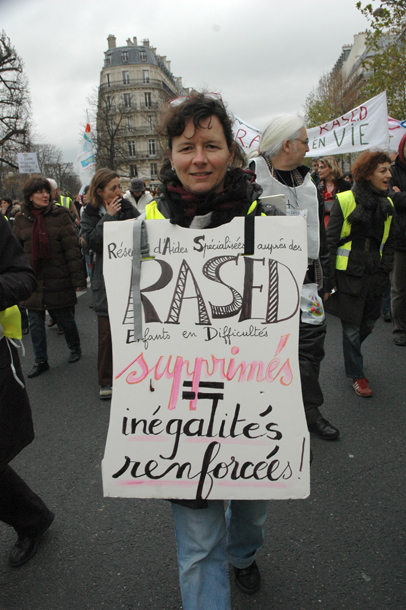 RASED
EN VIE
Réseau d'Aides Spécialisées auprès des
RASED
Enfants en Difficultés
supprimés
=
inégalités
renforcées!